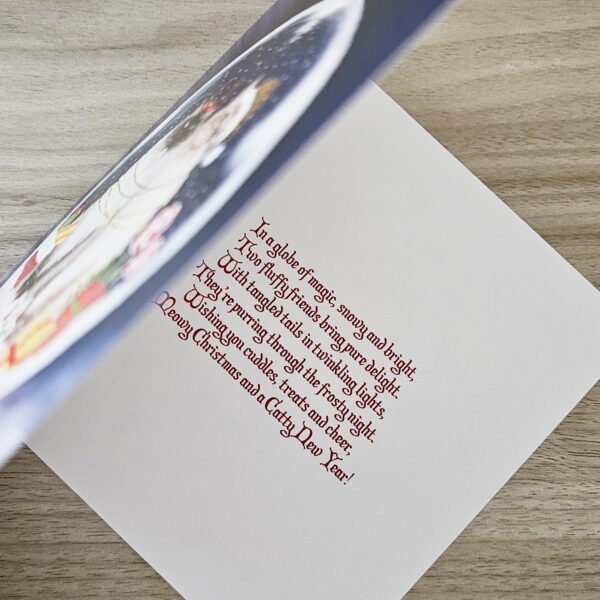 In a globe of magic, snowy and bright,
Two fluffy friends bring pure delight.
With tangled tails in twinkling lights,
They're purring through the frosty night.
Wishing you cuddles, treats and cheer,
Meowy Christmas and a Catty New Year!